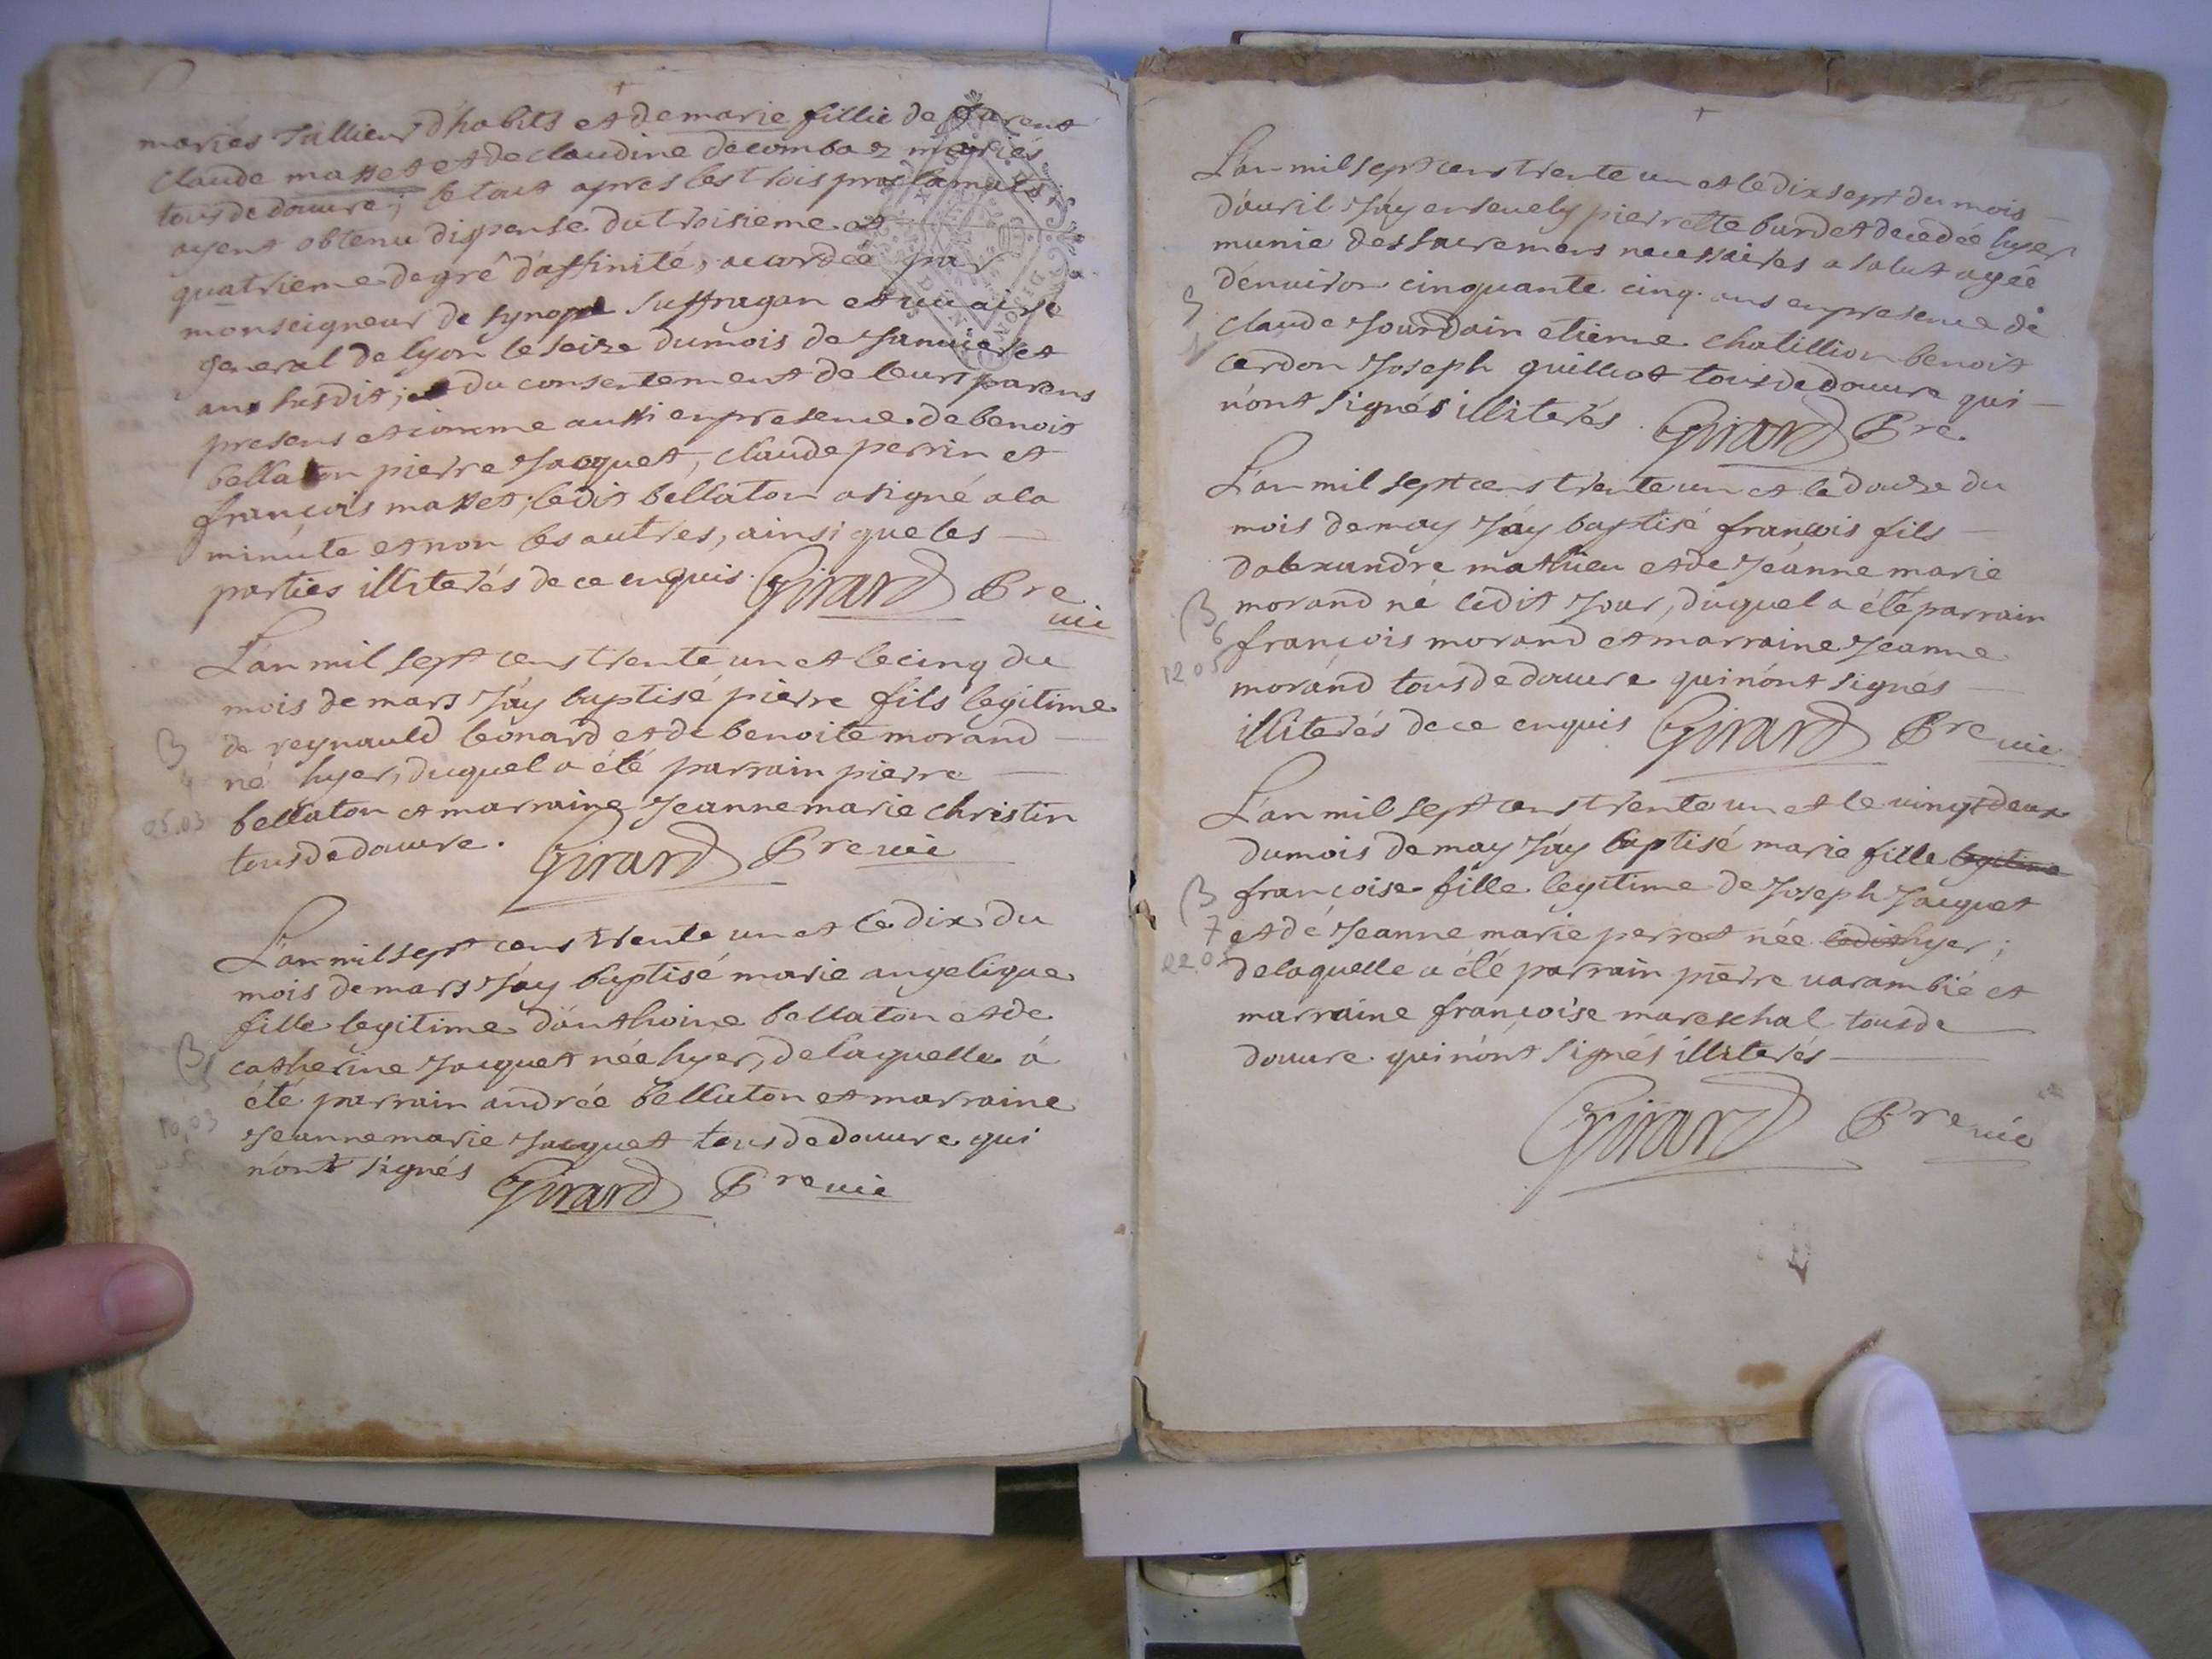 mariés tallieur d'habits et de marie fillie de
claude masset et de claudine decombaz mariés
tous de douvre; le tout apres les trois proclamats
ayent obtenu dispense du troisieme et
quatrieme degré d'affinité, accordée par
monseigneur de synope suffragan et vicaire
general de lyon le seize du mois de Janvier et
an susdit; du consentement de leurs parens
presens et comme aussi en presence de benoit
bellaton pierre Jacquet, claude perrin et
françois masset; ledit bellaton a signé a la
minute et non les autres, ainsi que les
parties illiterés de ce enquis. Girard Pre
vic
L'an mil sept cens trente un et le cinq du
mois de mars J'áy baptisé pierre fils legitime
de reynauld leonard et de benoite morand
B
né hyer, duquel a été parrain pierre
4
bellaton et marraine Jeanne marie christin
05.03
tous de douvre. Girard Pre vic
L'an mil sept cens trente un et le dix du
mois de mars J'áy baptisé marie angelique
fille legitime d'ánthoine bellaton et de
B
catherine Jacquet née hyer, de laquelle á
5
été parrain andrée bellaton et marraine
10.03
Jeanne marie Jacquet tous de douvre qui
n'ont signés Girard Pre vic
L'an mil sept cens trente un et le dix sept du mois
d'ávril J'áy ensevely pierrette burdet decedée hyer
munie des sacremens necessaires a salut agée
d'énviron cinquante cinq ans en presence de
S
claude Jourdain etienne chatillion benoit
cerdon Joseph guilliot tous de douvre qui
n'ont signés illiterés. Girard Pre
L'an mil sept cens trente un et le douze du
mois de may J'áy baptisé françois fils
d'alexandre mathieu et de Jeánne marie
B
morand né ledit Jour, duquel a été parrain
6
françois morand et marraine Jeanne
12.05
morand tous de douvre qui n'ónt signés
illiterés de ce enquis Girard Pre vic
L'an mil sept cens trente un et le vingt deux
du mois de may J'áy baptisé marie fille legitime
B
françoise fille legitime de Joseph Jacquet
7
et dé Jeanne marie perrot née ledit hyer;
22.05
de laquelle a été parrain pierre varambié et
marraine françoise mareschal tous de
douvre qui n'ónt signés illiterés
Girard Pre vic